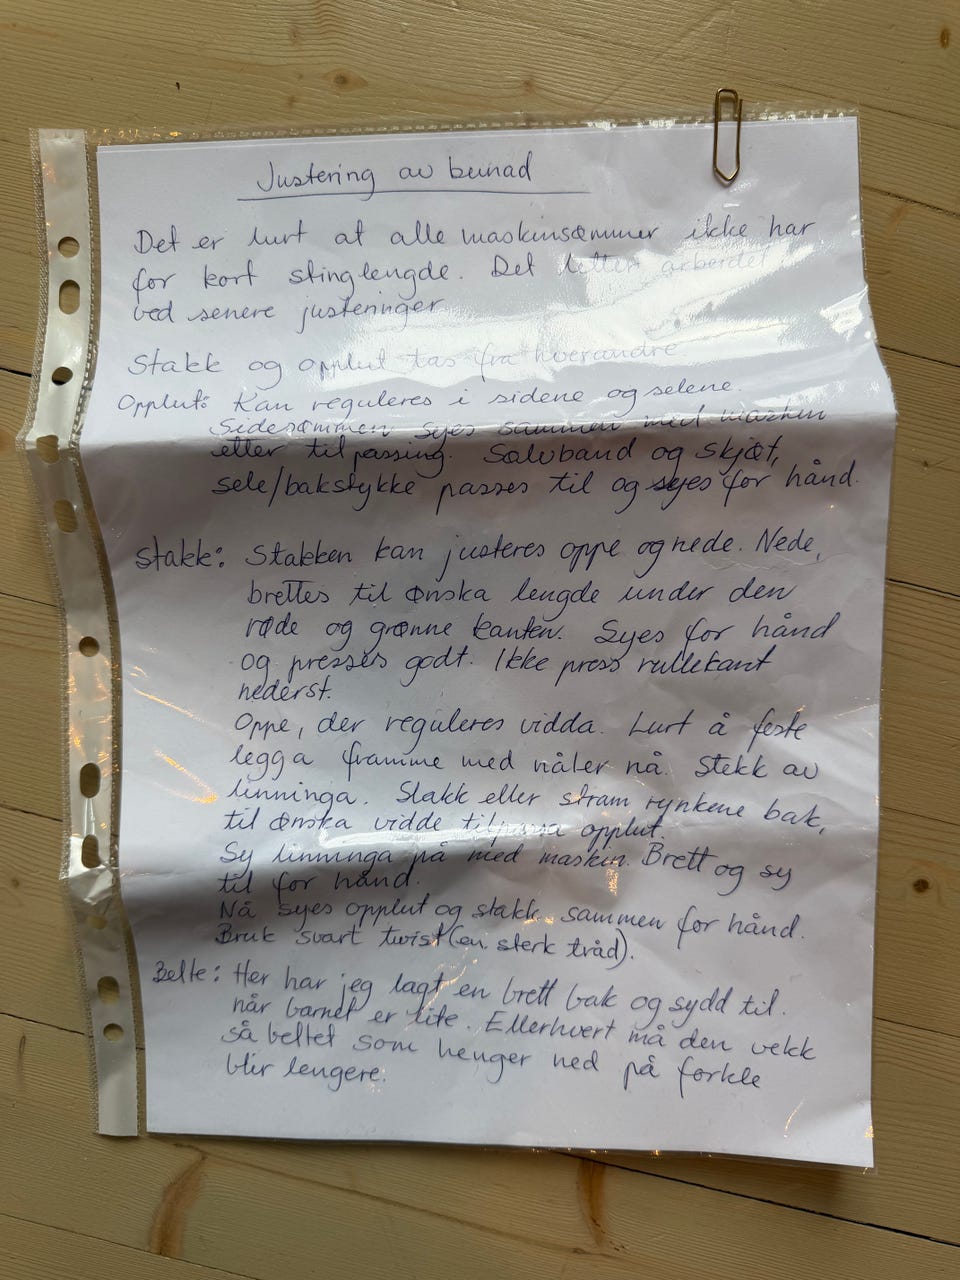 Justering av bunad
Det er lurt at alle maskinsømmer ikke har
for kort stinglengde. Det letter arbeidet
ved senere justeringer
Stakk og opplut tas fra hverandre.
Opplut: Kan reguleres i sidene og selene.
Sidesømmen syes sammen med maskin
etter tilpassing. Sølvband og skjøt,
sele/bakstykke passes til og syes for hånd.
Stakk: Stakken kan justeres oppe og nede. Nede,
brettes til ønska lengde under den
røde og grønne kanten. Syes for hånd
og presses godt. Ikke press rullekant
nederst.
Oppe, der reguleres vidda. Lurt å feste
legga framme med nåler nå. Stekk av
linninga. Slakk eller stram rynkene bak,
til ønska vidde tilpassa opplut.
Sy linninga på med maskin. Brett og sy
til for hånd.
Nå syes opplut og stakk sammen for hånd.
Bruk svart twist (en sterk tråd).
Belte: Her har jeg lagt en brett bak og sydd til.
når barnet er lite. Ellerhvert må den vekk
så beltet som henger ned på forkle
blir lengere.